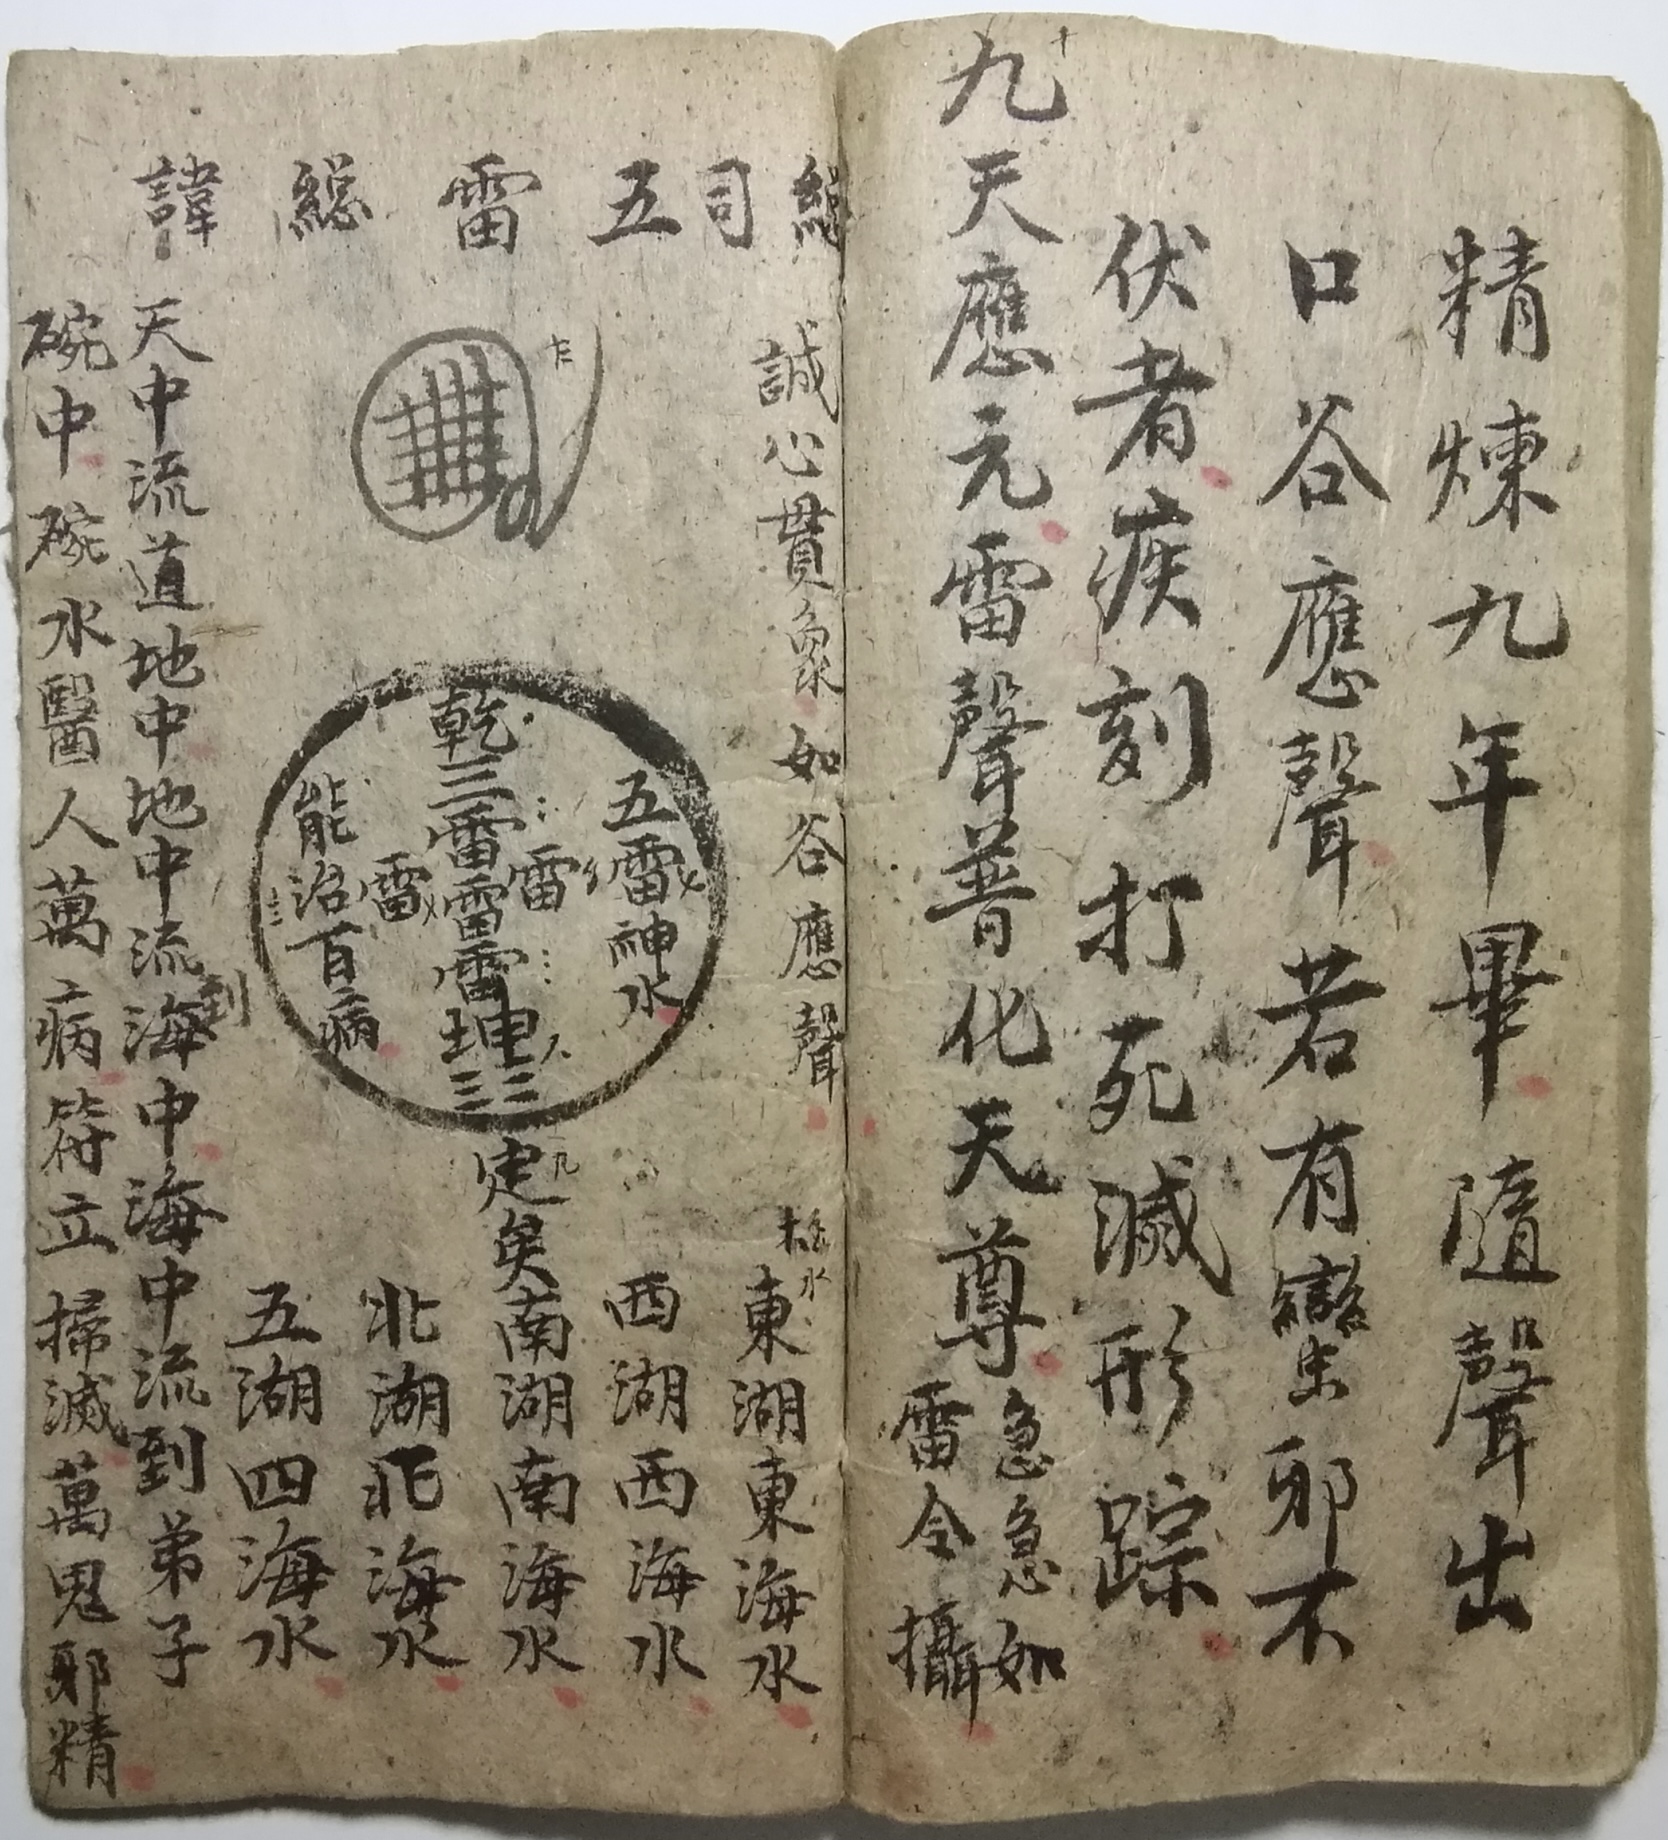 精煉九年畢隨聲出
口谷應聲若有蠻虫邪不
伏者疾刻打死滅形踪
九天應元雷聲普化天尊急急如
雷令攝
總司五雷總諱
誠心貫象如谷應聲
五雷神水
乾三雷雷雷坤三三
雷
雷
能治百病
定矣
東湖東海水
西湖西海水
南湖南海水
北湖北海水
五湖四海水
天中流道地中地中流到海中海中流到弟子
碗中碗水醫人萬病符立掃滅萬鬼邪精